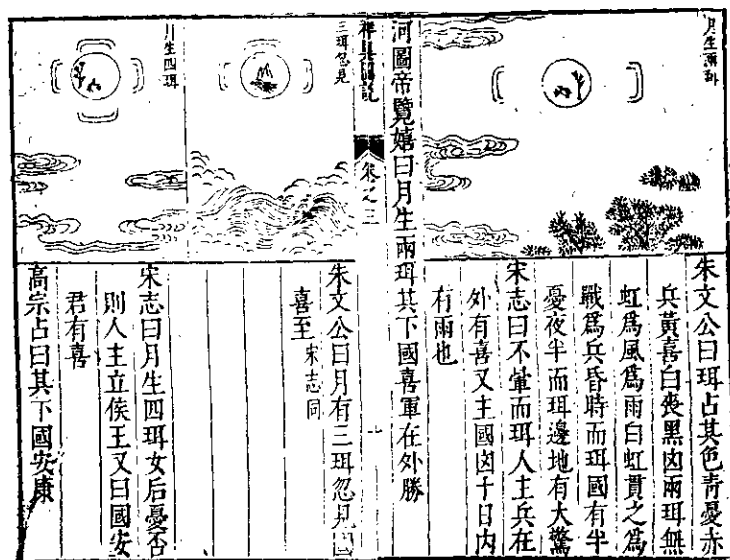 月生兩珥
朱文公曰珥占其色青憂赤
兵黃喜白喪黑凶兩珥無
虹為風為雨白虹貫之為
戰為兵昏時而珥國有半
憂夜半而珥邊地有大驚
宋志曰不暈而珥人主兵在
外有喜又主國凶十日內
有雨也
河圖帝覽嬉曰月生兩珥其下國喜軍在外勝
卷之三
三珥忽見
朱文公曰月有三珥忽見國
喜至 宋志同
月生四珥
宋志曰月生四珥女后憂否
則人主立侯王又曰國安
君有喜
高宗占曰其下國安康